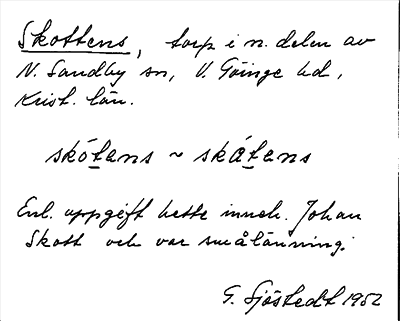 Skottens, torp i n. delen av
N. Sandby sn, V. Göinge hd,
Krist. län.
skótens ~ skátens
Enl. uppgift hette inneh. Johan
Skott och var smålänning.
G. Sjöstedt 1952